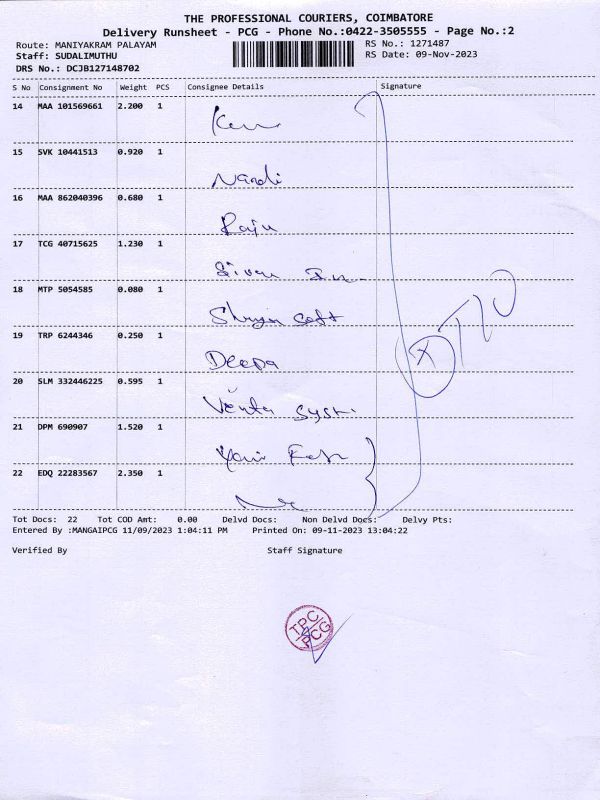 THE PROFESSIONAL COURIERS, COIMBATORE
Delivery Runsheet - PCG - Phone No.:0422-3505555 - Page No.:2
Route: MANIYAKRAM PALAYAM RS No.: 1271487
Staff: SUDALIMUTHU RS Date: 09-Nov-2023
DRS No.: DCJB127148702
S No Consignment No Weight PCS Consignee Details Signature
14 MAA 101569661 2.200 1
15 SVK 10441513 0.920 1
Nandi
16 MAA 862040396 0.680 1
Raju
17 TCG 40715625 1.230 1
18 MTP 5054585 0.080 1
19 TRP 6244346 0.250 1
Deepa
20 SLM 332446225 0.595 1
21 DPM 690907 1.520 1
22 EDQ 22283567 2.350 1
Tot Docs: 22 Tot COD Amt: 0.00 Delvd Docs: Non Delvd Docs: Delvy Pts:
Entered By :MANGAIPCG 11/09/2023 1:04:11 PM Printed On: 09-11-2023 13:04:22
Verified By Staff Signature
TPC
PCG